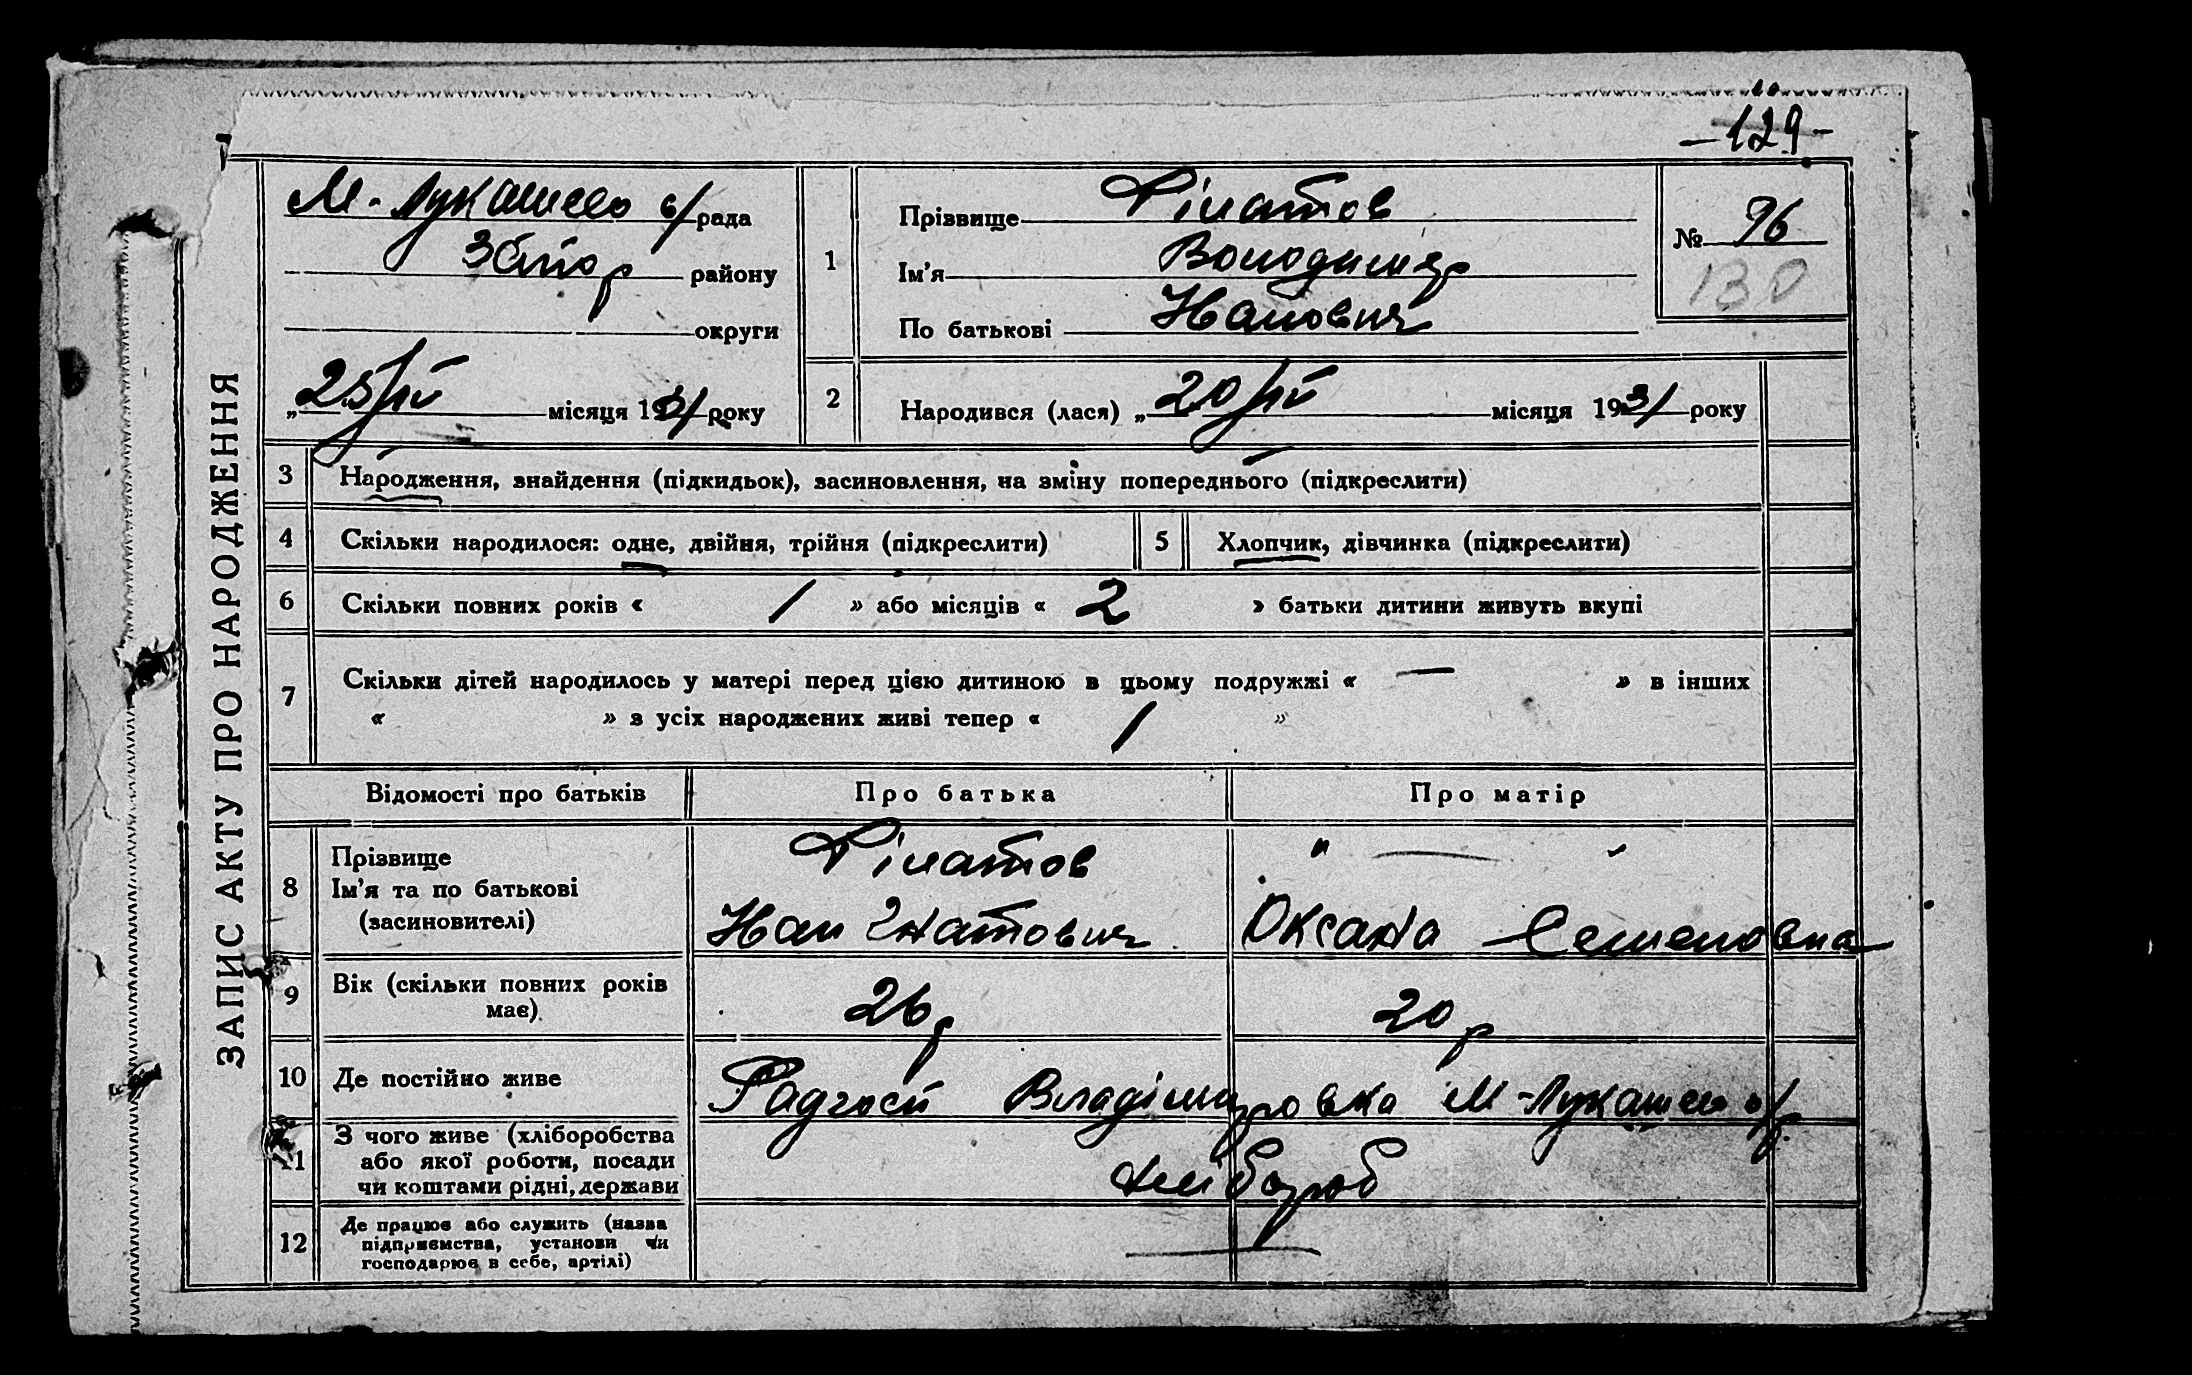 -129-
ЗАПИС АКТУ ПРО НАРОДЖЕННЯ
М-Лукашево с/рада
Запор району
округи
„25/IV місяця 1931 року
1
Прізвище Філатов
Ім'я Володимир
По батькові
№ 96
130
2
Народився (лася) „20/IV місяця 1931 року
3 Народження, знайдення (підкидьок), засиновлення, на зміну попереднього (підкреслити)
4 Скільки народилося: одне, двійня, трійня (підкреслити)
5 Хлопчик, дівчинка (підкреслити)
6 Скільки повних років « 1 » або місяців « 2 » батьки дитини живуть вкупі
7 Скільки дітей народилось у матері перед цією дитиною в цьому подружжі « — » в інших
« » з усіх народжених живі тепер « 1 »
Відомості про батьків Про батька Про матір
8 Прізвище
Ім'я та по батькові
(засиновителі)
Філатов
Ігнатович
" — "
Оксана Семеновна
9 Вік (скільки повних років
має)
26 р
20 р
10 Де постійно живе
Радгосп Владіміровка М-Лукашево с/р
11 З чого живе (хліборобства
або якої роботи, посади
чи коштами рідні, держави
хлібороб
12 Де працює або служить (назва
підприємства, установи чи
господарює в себе, артілі)
—